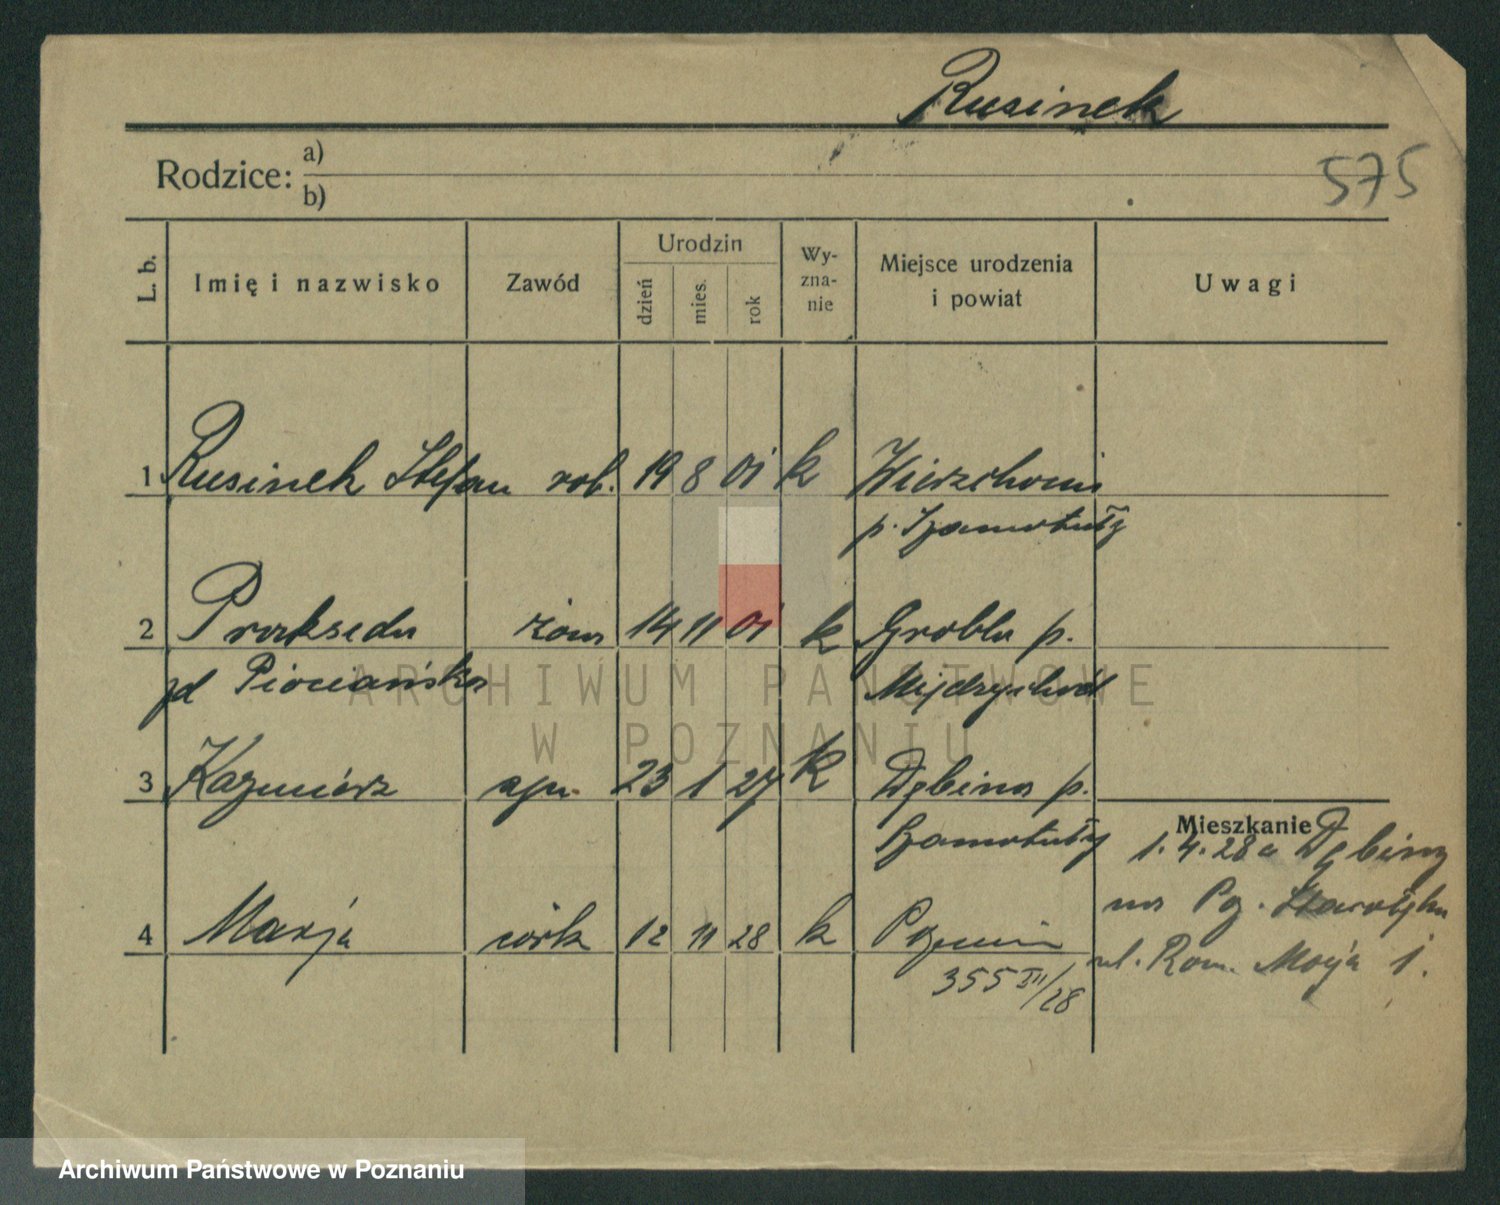 Rusinek
575
Rodzice:
a)
b)
L. b.
Imię i nazwisko
Zawód
Urodzin
dzień
mies.
rok
Wy-
zna-
nie
Miejsce urodzenia
i powiat
Uwagi
1 Rusinek Stefan rob. 19 8 01 k
p. Szamotuły
2 Prakseda żona 14 11 01 k Grobla p.
zd Międzychód
3 Kazimiérz syn 23 1 27 k Dębina p.
Szamotuły
Mieszkanie
1.4.28 Dębiny
na
4 Marja córk 12 11 28 k Poznań
ul. 1.
355 III/28
ARCHIWUM PAŃSTWOWE
W POZNANIU
Archiwum Państwowe w Poznaniu